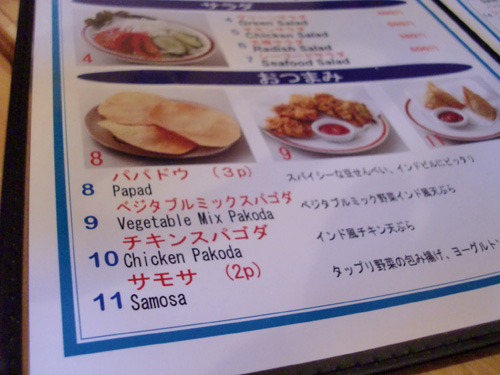 サラダ
4 グリーンサラダ
Green Salad
5 チキンサラダ
Chicken Salad
6
Radish Salad
7 シーフードサラダ
Seafood Salad
4
おつまみ
8
9
11
パパドウ (3p) スパイシーな豆せんべい、インドビルにピッタリ
8 Papad
ベジタブルミックスパゴダ ベジタブルミック野菜インド風天ぷら
9 Vegetable Mix Pakoda
チキンスパゴダ インド風チキン天ぷら
10 Chicken Pakoda
サモサ (2p) タップリ野菜の包み揚げ、ヨーグルト
11 Samosa